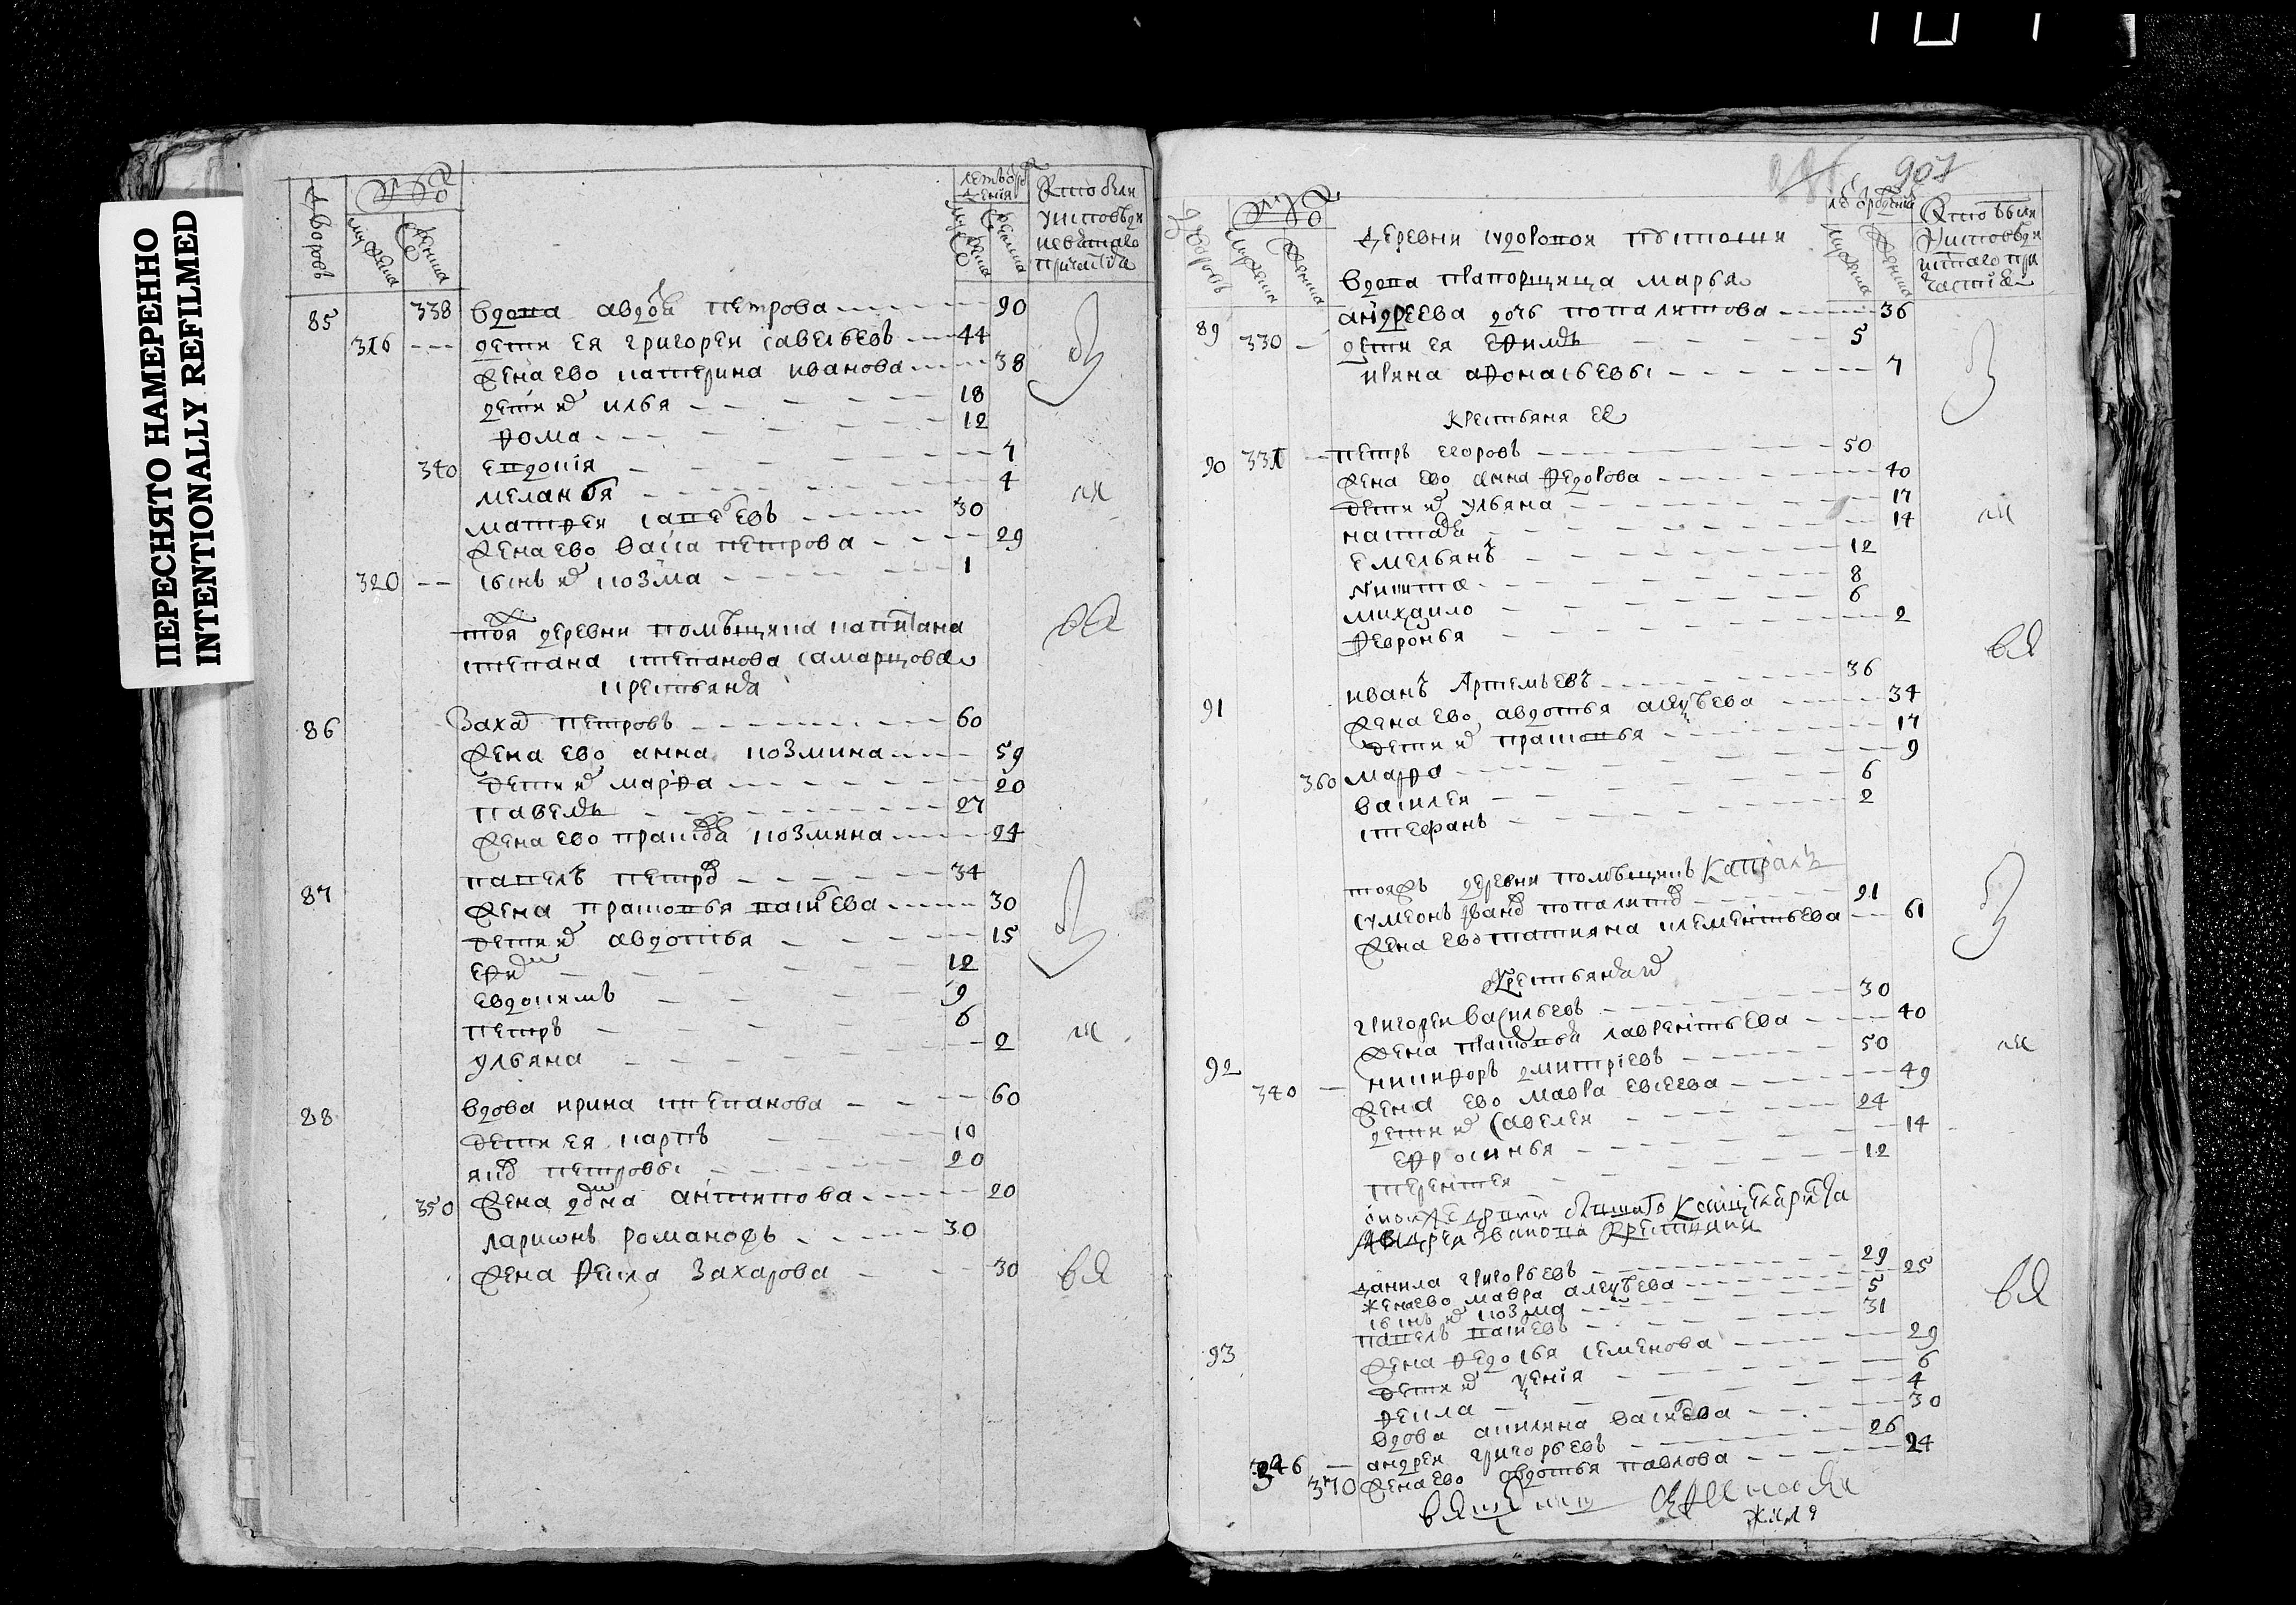 ПЕРЕСНЯТО НАМЕРЕННО
INTENTIONALLY REFILMED
дворовъ
мужеска
женска
летъ от рождения
Кто были у исповеди и св: таго причастия
85 338 вдова авдотья петрова 90
316 дети ея григореи савельевъ 44
жена ево катерина иванова 38
дети их илья 18
фома 12
340 евдокия 7
меланья 4
матфеи савельевъ 30
жена ево васса петрова 29
320 сынъ их козма 1
тоя деревни помѣщика капитана
степана степанова самарцова
крестьяня
86 Захар петровъ 60
жена ево анна козмина 59
дети их марфа 20
павелъ 27
жена ево прасковья козмина 24
87 павелъ петров 34
жена прасковья васильева 30
дети их авдотья 15
ефим 12
евдокимъ 9
петръ 6
ульяна 2
88 вдова ирина степанова 60
дети ея карпъ 10
яков петровы 20
350 жена домна антипова 20
ларионъ романовъ 30
жена фекла Захарова 30
907
деревни
вдова прапорщица марья
89 андреева дочь 36
330 дети ея ефимъ 5
афонасьевы 7
крестьяня ее
90 331 петръ егоровъ 50
жена ево анна федорова 40
дети их ульяна 17
настасья 14
емельянъ 12
никита 8
михаило 6
февронья 2
91 иванъ Артемьевъ 36
жена ево авдотья алексѣева 34
дети их прасковья 17
360 марфа 9
василеи 6
стефанъ 2
тояжъ деревни помѣщикъ Капралъ
сумеонъ иванов 91
жена ево татияна клементьева 61
Крестьяня их
григореи васильевъ 30
жена прасковья лаврентьева 40
92 никифоръ дмитриевъ 50
340 жена ево мавра евсеева 49
дети их савелеи 24
ефросинья 14
терентеи 12
Андрея Иванова Крестьяня
данила григорьевъ 29
жена ево мавра алексѣева 25
сынъ их козма 5
павелъ васильевъ 31
93 жена федосья семенова 29
дети их ксения 6
фекла 4
вдова акилина васильева 30
346 андреи григорьевъ 26
370 жена ево авдотья павлова 24